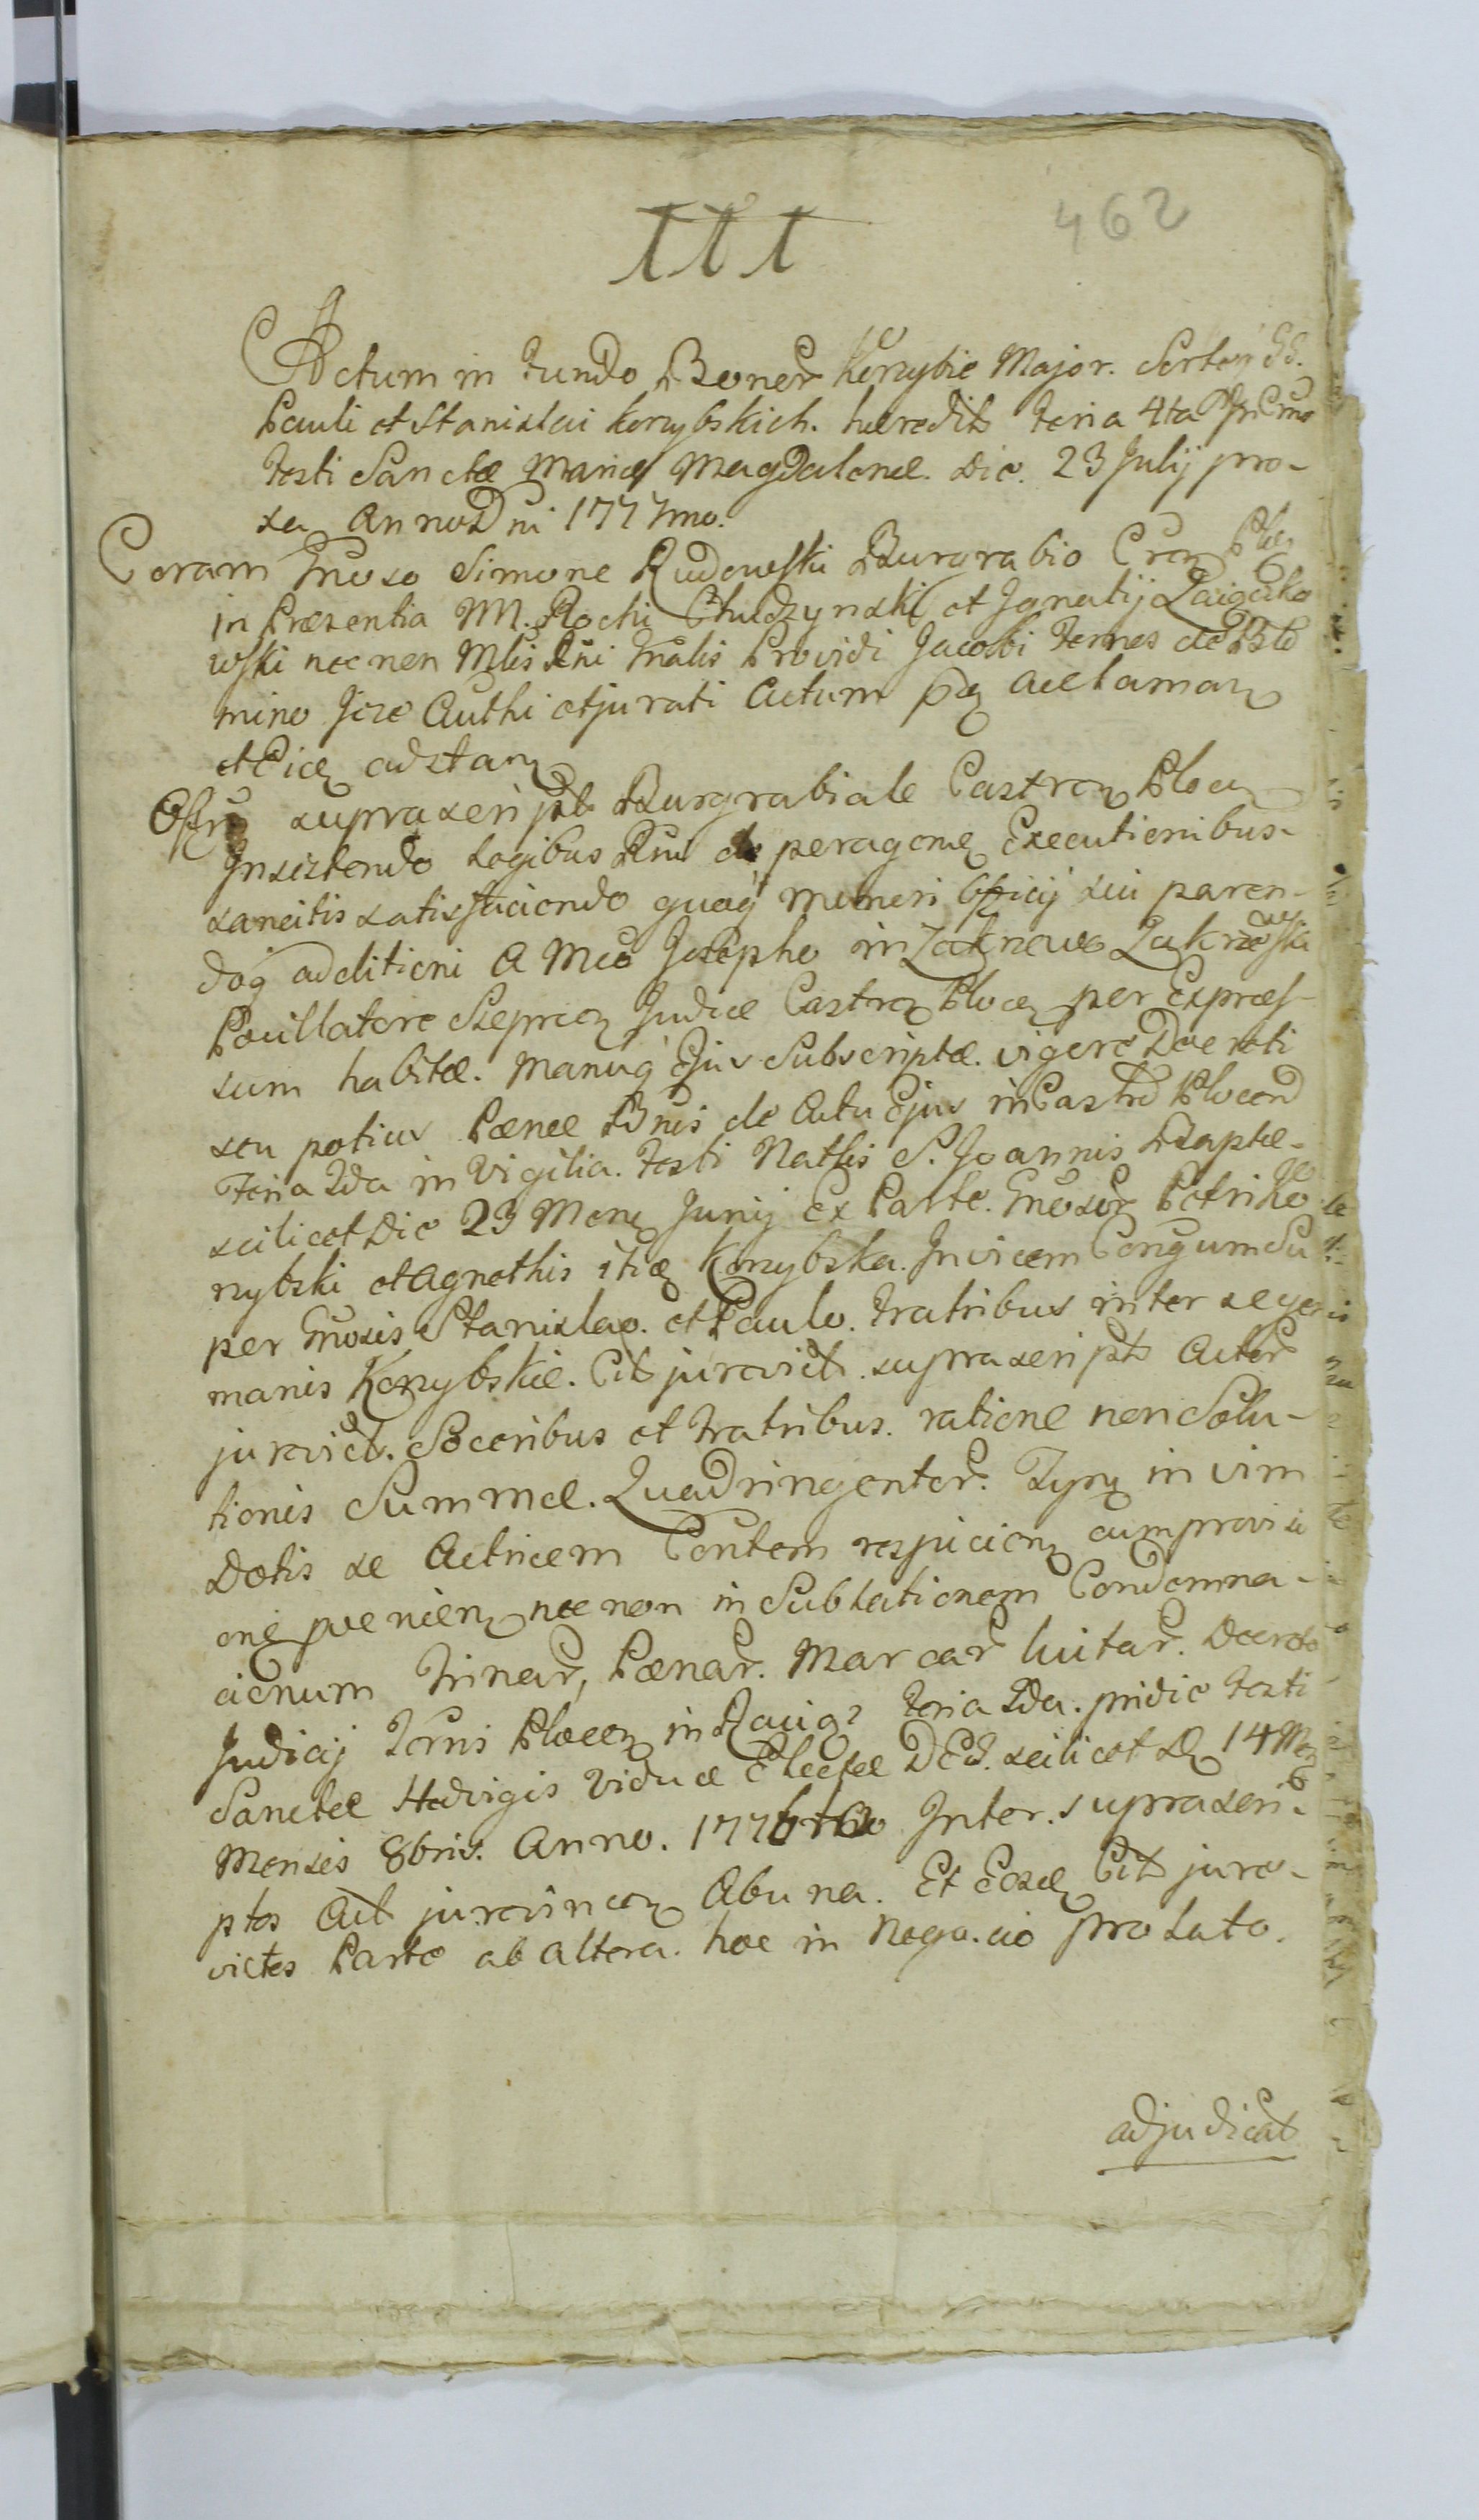 462
III
Actum in Fundo Boner Korzybie Major. Sorten GG.
Pauli et Stanislai Korzybskich. hæredit Feria 4ta
Festi Sanctæ Mariæ Magdalenæ. Die. 23 Julij pro-
xa Anno Dni 1777mo.
Coram Gnoso Simone Rudowski Burgrabio Cren Ploc
in Præsentia M. Rochi Chudzynski et Ignatij
wski nec non Mlis Rni Gnalis Providi Jacobi de Blo
mino Jizo Authi et jurati Actum pq Acclaman
et adstan
Offm suprascript Burgrabiale Castren Plocen
Insistendo Legibus Rni de peragen Executionibus-
sancitis satisfaciendo quoq muneri Officij sui paren-
doq additioni A Mco Josepho in Zakrzewo Zakrzewski
Pocillatore Sieprcen Judice Castren Plocen per Expræs-
sum habitæ. Manuq Ejus Subscriptæ. vigore Decreti
seu potius Pænæ Bnis de Actu Ejus in Castro Plocen
Feria 2da in Vigilia. Festi Natlis S. Joannis Baptæ-
scilicet Die 23 Mens Junij Ex Parte. Gnosor Petri Ko
rzybski et Agnethis Korzybska. Invicem Congum Su
per Gnosis Stanislao. et Paulo. Fratribus inter se ger
manis Korzybskie. Cit jurevict. suprascript Actor
jurevict. Soceribus et Fratribus. ratione non Solu-
tionis Summæ. Quadringentor. Fypn in vim
Dotis se Actricem Contem respicien cumprovisi
one poenien nec non in Sublationem Condemna-
cionum Trinar, Pænar. Marcar luitar. Decreto
Judicij Terris Plocen in Raciąz Feria 2da. pridie Festi
Sanctæ Hedvigis Viduæ Electæ Dei. scilicet D 14 Men
Mensis 8bris. Anno. 1776to Inter. suprascri-
ptos Act jurevincen Ab una. Et Eosd Cit jure-
victos Parte ab altera. hoc in Negocio pro Lato.
adjudicat